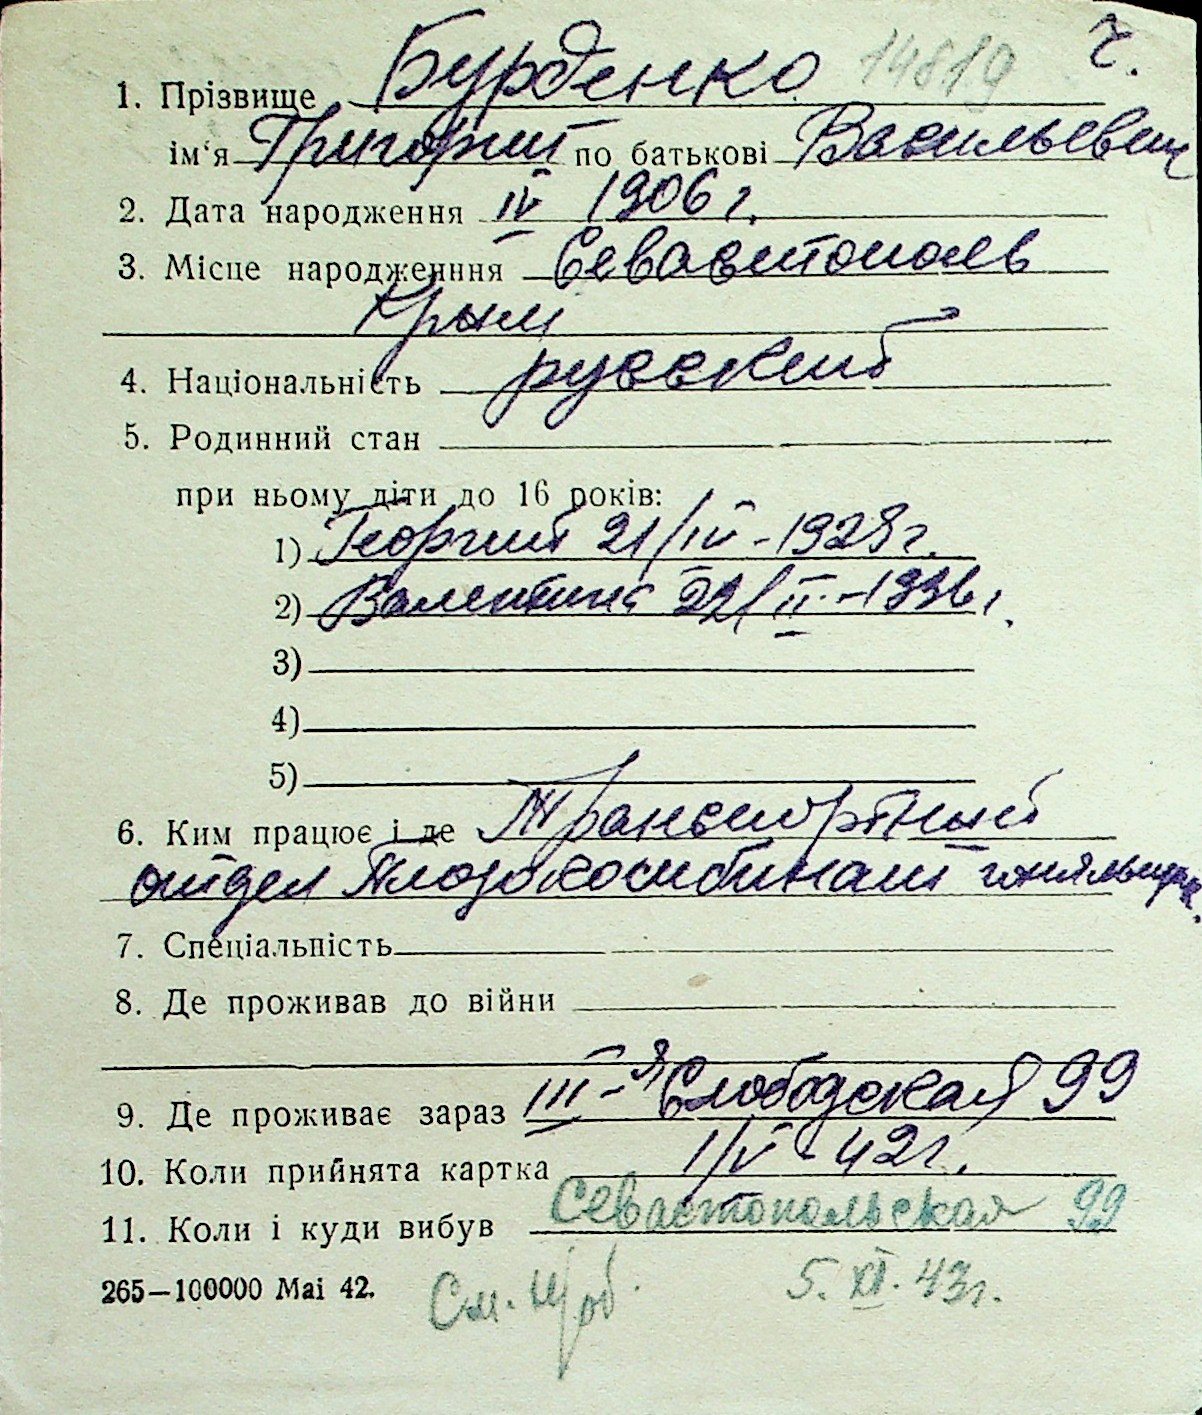 14819 Ч.
1. Прізвище Бурденко
ім'я Григорий по батькові Васильевич
2. Дата народження IV 1906 г.
3. Місце народженння Севастополь
Крым
4. Національність русский
5. Родинний стан
при ньому діти до 16 років:
1) Георгий 21/IV-1928 г.
2) Валентина 22/II-1936 г.
3)
4)
5)
6. Ким працює і де Транспортный
отдел Плодокомбинат
7. Спеціальність
8. Де проживав до війни
9. Де проживає зараз III-я Слободская 99
10. Коли прийнята картка 1/V 42 г.
11. Коли і куди вибув Севастопольская 99
265—100000 Mai 42. См. 5. XI. 43 г.